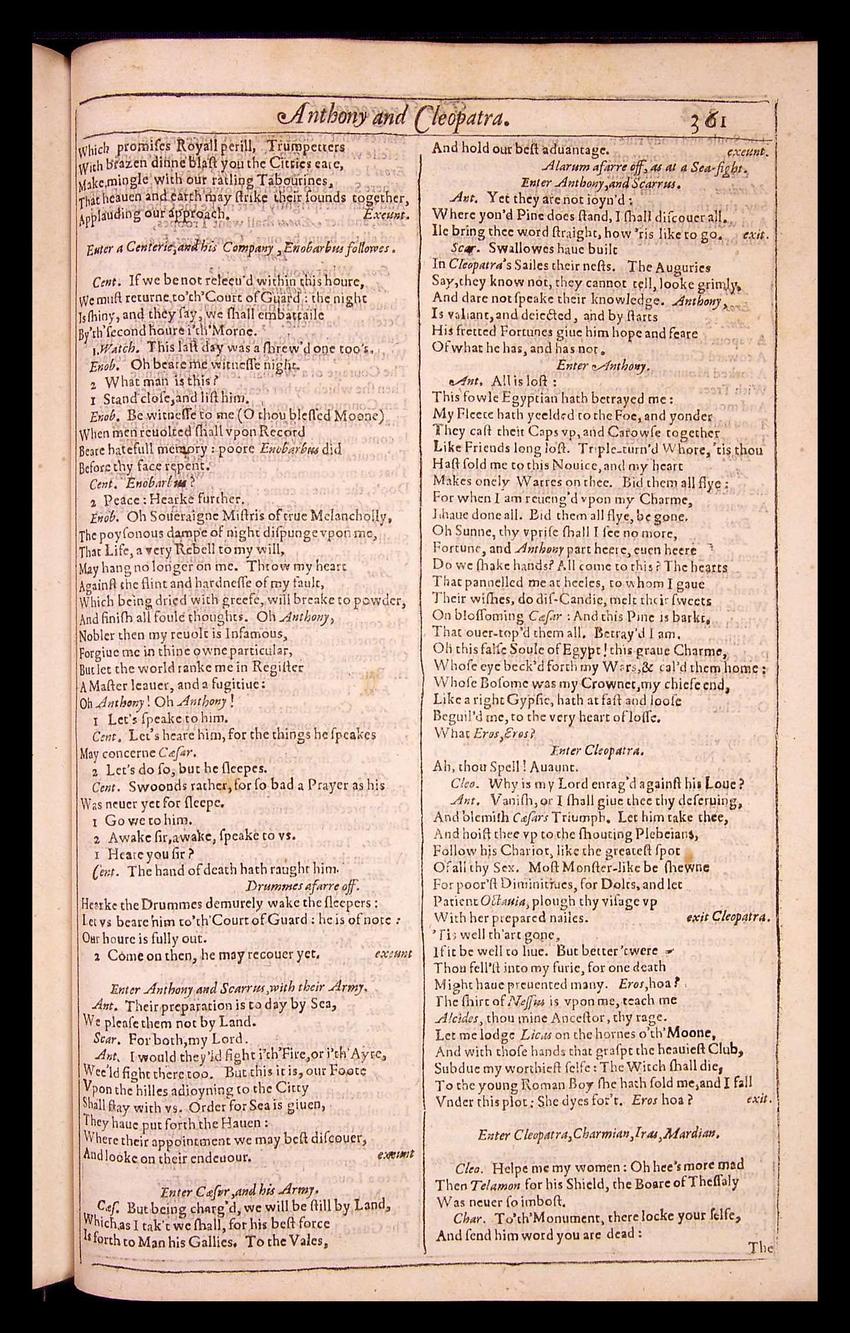 Anthony and Cleopatra. 361
Which promiſes Royall perill, Trumpetters
With brazen dinne blaſt you the Citties eare,
Make mingle with our ratling Tabourines,
That heauen and earth may ſtrike their ſounds together,
Applauding our approach. Exeunt.
Enter a Centerie, and his Company, Enobarbus followes.
Cent. If we be not releeu'd within this houre,
We muſt returne to'th'Court of Guard: the night
Is ſhiny, and they ſay, we ſhall embattaile
By'th'ſecond houre i'th'Morne.
1.Watch. This laſt day was a ſhrew'd one too's.
Enob. Oh beare me witneſſe night.
2 What man is this?
1 Stand cloſe, and liſt him.
Enob. Be witneſſe to me (O thou bleſſed Moone)
When men reuolted ſhall vpon Record
Beare hatefull memory: poore Enobarbus did
Before thy face repent.
Cent. Enobarbus?
2 Peace: Hearke further.
Enob. Oh Soueraigne Miſtris of true Melancholly,
The poyſonous dampe of night diſpunge vpon me,
That Life, a very Rebell to my will,
May hang no longer on me. Throw my heart
Againſt the flint and hardneſſe of my fault,
Which being dried with greefe, will breake to powder,
And finiſh all foule thoughts. Oh Anthony,
Nobler then my reuolt is Infamous,
Forgiue me in thine owne particular,
But let the world ranke me in Regiſter
A Maſter leauer, and a fugitiue:
Oh Anthony! Oh Anthony!
1 Let's ſpeake to him.
Cent. Let's heare him, for the things he ſpeakes
May concerne Cæſar.
2 Let's do ſo, but he ſleepes.
Cent. Swoonds rather, for ſo bad a Prayer as his
Was neuer yet for ſleepe.
1 Go we to him.
2 Awake ſir, awake, ſpeake to vs.
1 Heare you ſir?
Cent. The hand of death hath raught him.
Drummes afarre off.
Hearke the Drummes demurely wake the ſleepers:
Let vs beare him to'th'Court of Guard: he is of note:
Our houre is fully out.
2 Come on then, he may recouer yet. exeunt
Enter Anthony and Scarrus, with their Army.
Ant. Their preparation is to day by Sea,
We pleaſe them not by Land.
Scar. For both, my Lord.
Ant. I would they'ld fight i'th'Fire, or i'th'Ayre,
Wee'ld fight there too. But this it is, our Foote
Vpon the hilles adioyning to the Citty
Shall ſtay with vs. Order for Sea is giuen,
They haue put forth the Hauen:
Where their appointment we may beſt diſcouer,
And looke on their endeuour. exeunt
Enter Cæſar, and his Army.
Cæſ. But being charg'd, we will be ſtill by Land,
Which as I tak't we ſhall, for his beſt force
Is forth to Man his Gallies. To the Vales,
And hold our beſt aduantage. exeunt.
Alarum afarre off, as at a Sea-fight.
Enter Anthony, and Scarrus.
Ant. Yet they are not ioyn'd:
Where yon'd Pine does ſtand, I ſhall diſcouer all.
Ile bring thee word ſtraight, how 'tis like to go. exit.
Scar. Swallowes haue built
In Cleopatra's Sailes their neſts. The Auguries
Say, they know not, they cannot tell, looke grimly,
And dare not ſpeake their knowledge. Anthony,
Is valiant, and deiected, and by ſtarts
His fretted Fortunes giue him hope and feare
Of what he has, and has not.
Enter Anthony.
Ant. All is loſt:
This fowle Egyptian hath betrayed me:
My Fleete hath yeelded to the Foe, and yonder
They caſt their Caps vp, and Carowſe together
Like Friends long loſt. Triple-turn'd Whore, 'tis thou
Haſt ſold me to this Nouice, and my heart
Makes onely Warres on thee. Bid them all flye:
For when I am reueng'd vpon my Charme,
I haue done all. Bid them all flye, be gone.
Oh Sunne, thy vpriſe ſhall I ſee no more,
Fortune, and Anthony part heere, euen heere
Do we ſhake hands? All come to this? The hearts
That pannelled me at heeles, to whom I gaue
Their wiſhes, do diſ-Candie, melt their ſweets
On bloſſoming Cæſar: And this Pine is barkt,
That ouer-top'd them all. Betray'd I am.
Oh this falſe Soule of Egypt! this graue Charme,
Whoſe eye beck'd forth my Wars, & cal'd them home:
Whoſe Boſome was my Crownet, my chiefe end,
Like a right Gypſie, hath at faſt and looſe
Beguil'd me, to the very heart of loſſe.
What Eros, Eros?
Enter Cleopatra.
Ah, thou Spell! Auaunt.
Cleo. Why is my Lord enrag'd againſt his Loue?
Ant. Vaniſh, or I ſhall giue thee thy deſeruing,
And blemiſh Cæſars Triumph. Let him take thee,
And hoiſt thee vp to the ſhouting Plebeians,
Follow his Chariot, like the greateſt ſpot
Of all thy Sex. Moſt Monſter-like be ſhewne
For poor'ſt Diminitiues, for Dolts, and let
Patient Octauia, plough thy viſage vp
With her prepared nailes. exit Cleopatra.
'Tis well th'art gone,
If it be well to liue. But better 'twere
Thou fell'ſt into my furie, for one death
Might haue preuented many. Eros, hoa?
The ſhirt of Neſſus is vpon me, teach me
Alcides, thou mine Anceſtor, thy rage.
Let me lodge Licas on the hornes o'th'Moone,
And with thoſe hands that graſpt the heauieſt Club,
Subdue my worthieſt ſelfe: The Witch ſhall die,
To the young Roman Boy ſhe hath ſold me, and I fall
Vnder this plot: She dyes for't. Eros hoa? exit.
Enter Cleopatra, Charmian, Iras, Mardian.
Cleo. Helpe me my women: Oh hee's more mad
Then Telamon for his Shield, the Boare of Theſſaly
Was neuer ſo imboſt.
Char. To'th'Monument, there locke your ſelfe,
And ſend him word you are dead:
The